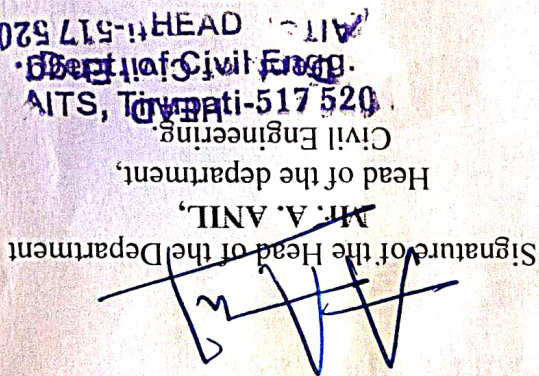 Signature of the Head of the Department
Mr. A. ANIL,
Head of the department,
Civil Engineering.
HEAD
Dept. of Civil Engg.
AITS, Tirupati-517 520